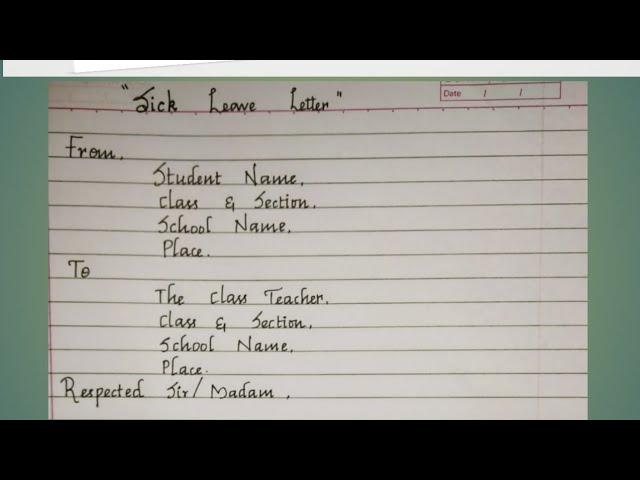 "Sick Leave Letter"
Date / /
From,
Student Name,
Class & Section,
School Name,
Place.
To
The Class Teacher,
Class & Section,
School Name,
Place.
Respected Sir/Madam,